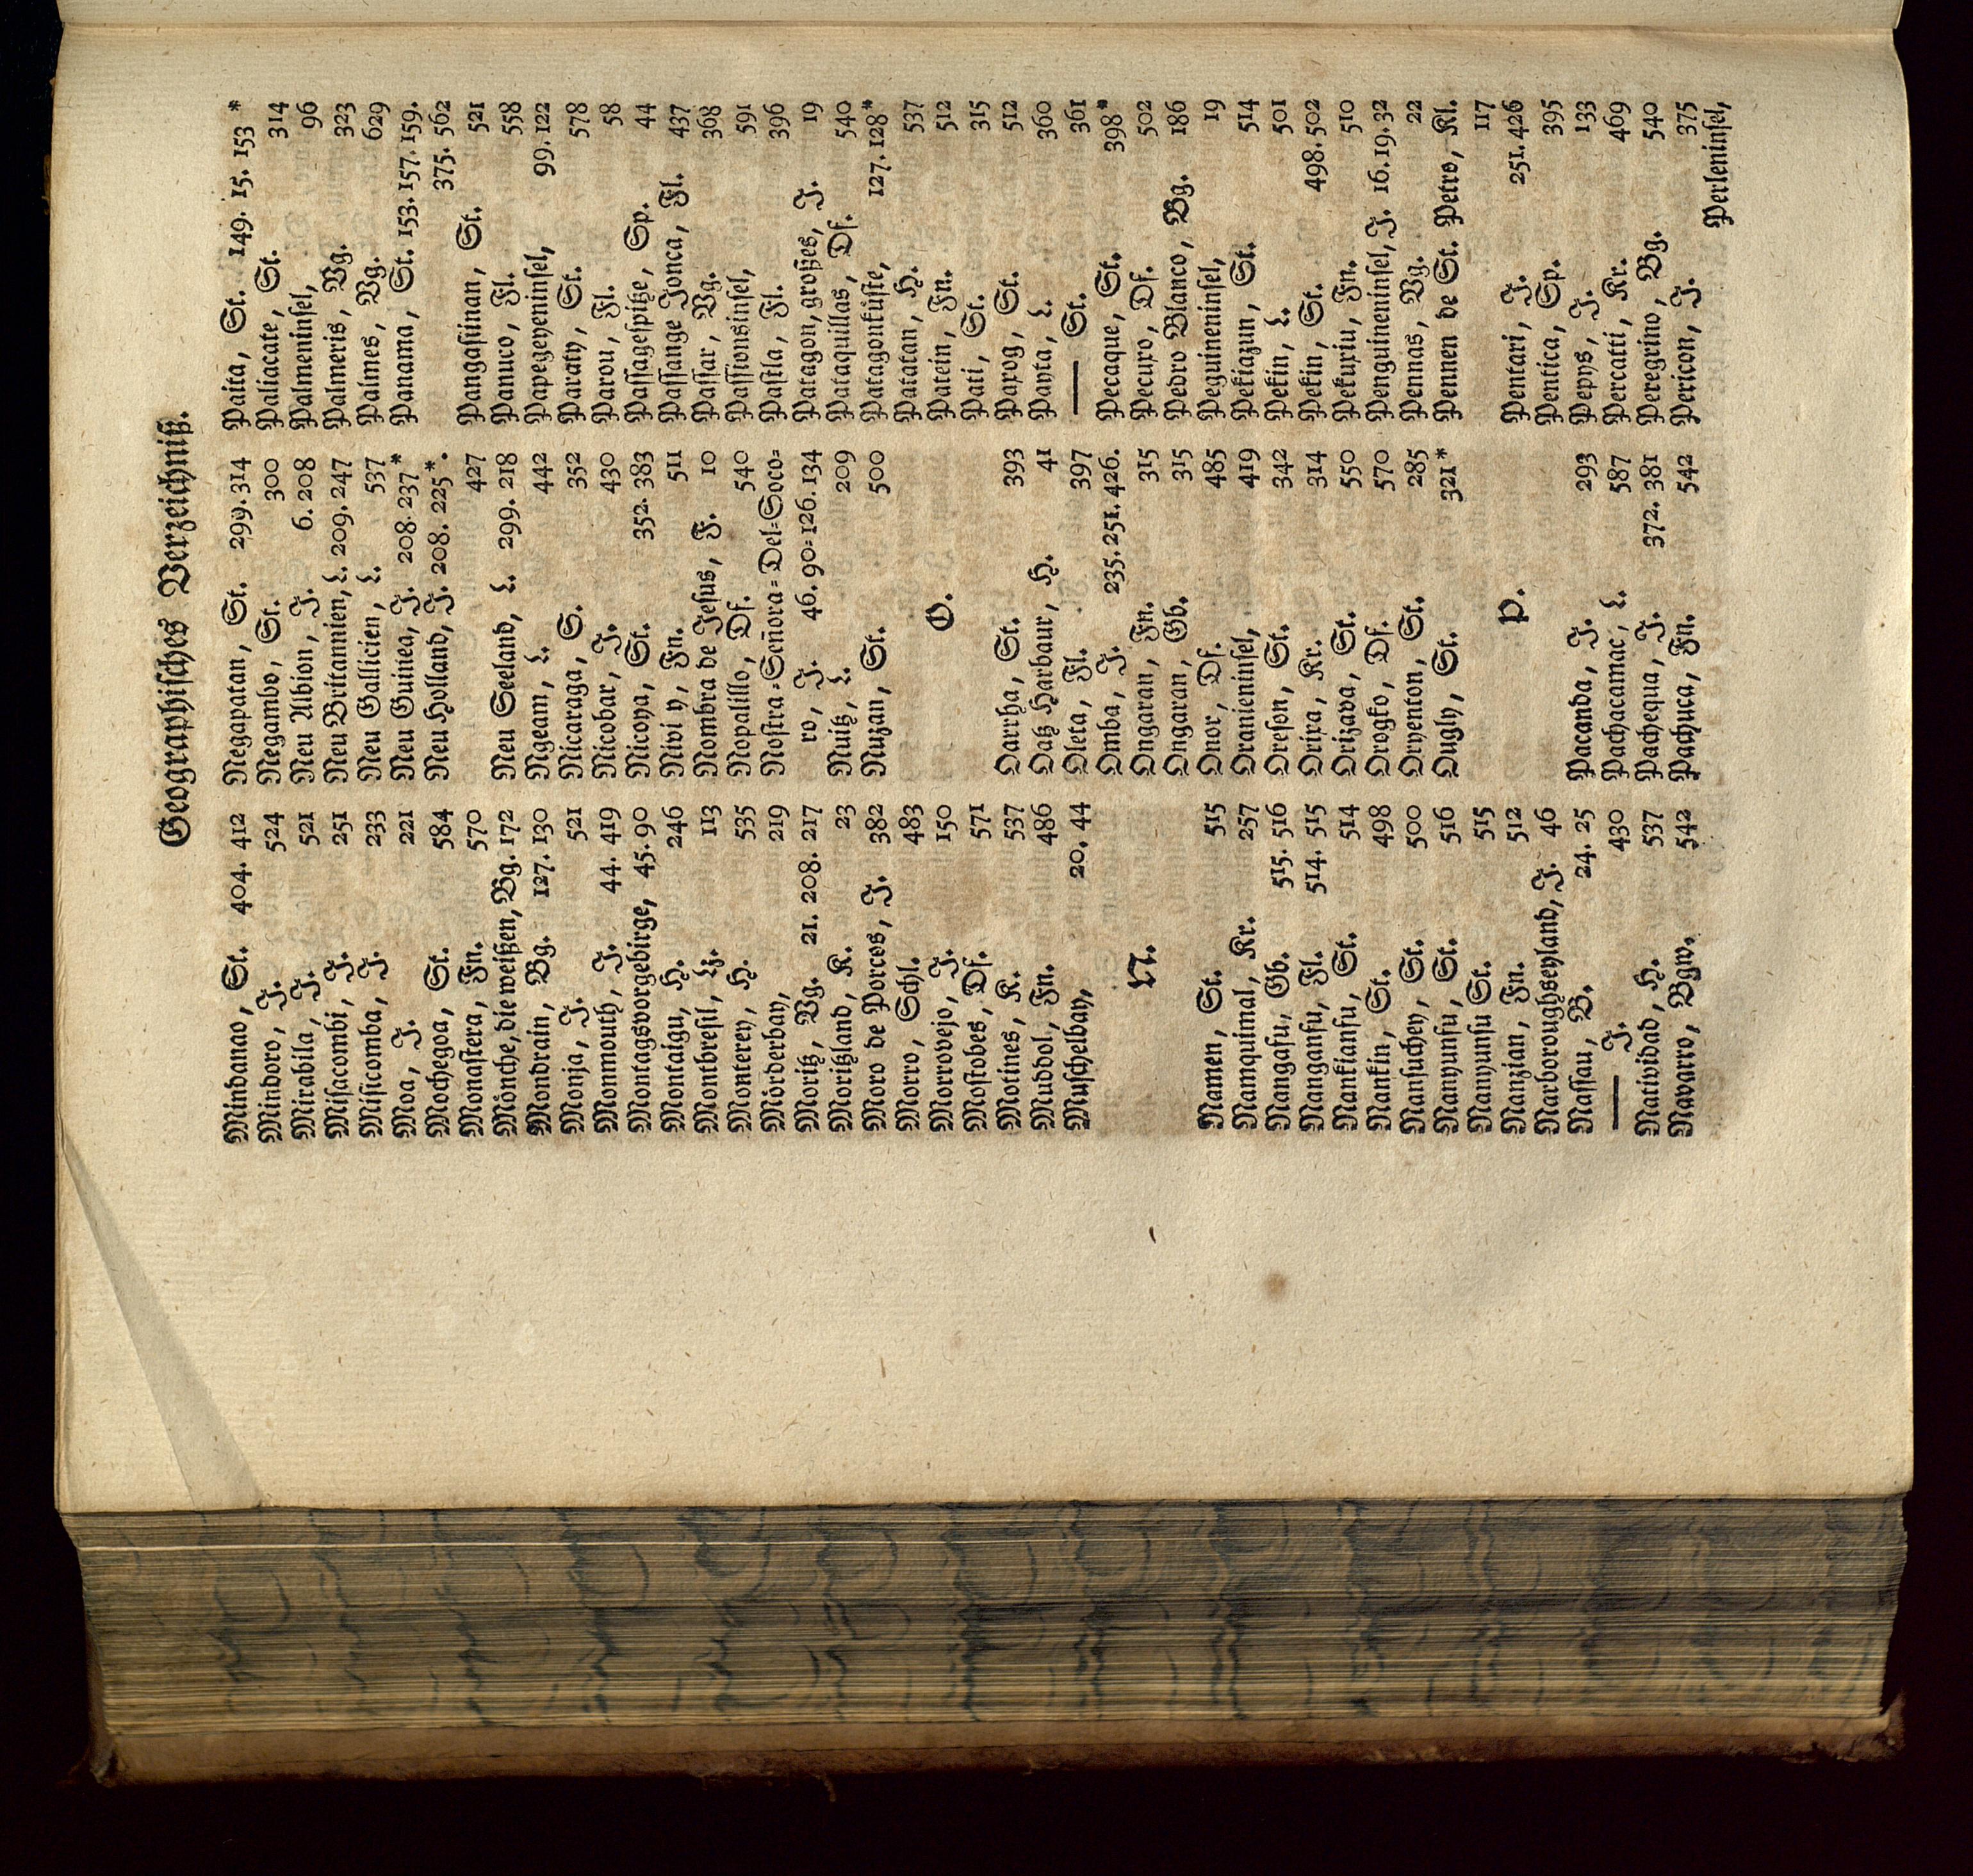 Geographisches Verzeichniß.
Mindanao, St. 404. 412
Mindoro, J. 524
Mirabila, J. 521
Misacombi, J. 251
Misicomba, J. 233
Moa, J. 221
Mochegoa, St. 584
Monastera, Fn. 570
Mönche, die weißen, Bg. 172
Mondrain, Bg. 127. 130
Monja, J. 521
Monmouth, J. 44. 419
Montagsvorgebirge, 45. 90
Montaigu, H. 246
Montbresil, Lz. 113
Monterey, H. 535
Mörderbay, 219
Moritz, Vg. 21. 208. 217
Moritzland, K. 23
Moro de Porces, J. 382
Morro, Schl. 483
Morrovejo, J. 150
Mostobes, Df. 571
Motines, K. 537
Muddol, Fn. 486
Muschelbay, 20. 44
N.
Namen, St. 515
Namquimal, Kr. 257
Nangasu, Gb. 515. 516
Nangansu, Fl. 514. 515
Nankiansu, St. 514
Nankin, St. 498
Nansuchey, St. 500
Nanyunfu, St. 516
Nanyunsu St. 515
Nanzian, Fn. 512
Narboroughseyland, J. 46
Nassau, B. 24. 25
—— J. 430
Natividad, H. 537
Navarro, Bgw. 542
Negapatan, St. 299. 314
Negambo, St. 300
Neu Albion, J. 6. 208
Neu Britannien, L. 209. 247
Neu Gallicien, L. 537
Neu Guinea, J. 208. 237*
Neu Holland, J. 208. 225*.
427
Neu Seeland, L. 299. 218
Ngeam, L. 442
Nicaraga, S. 352
Nicobar, J. 430
Nicoya, St. 352. 383
Nivi y, Fn. 511
Nombra de Jesus, F. 10
Nopalillo, Df. 540
Nostra=Señora=Del=Soco=
ro, J. 46. 90=126. 134
Nuitz, L. 209
Nuzan, St. 500
O.
Oarrha, St. 393
Oatz Harbaur, H. 41
Oleta, Fl. 397
Omba, J. 235. 251. 426.
Ongaran, Fn. 315
Ongaran, Gb. 315
Onor, Df. 485
Oranieninsel, 419
Oreson, St. 342
Orixa, Kr. 314
Orizava, St. 550
Orogko, Df. 570
Oryenton, St. 285
Ougly, St. 321*
P.
Pacanda, J. 293
Pachacamac, L. 587
Pachequa, J. 372. 381
Pachuca, Fn. 542
Paita, St. 149. 15. 153*
Paliacate, St. 314
Palmeninsel, 96
Palmeris, Vg. 323
Palmes, Vg. 629
Panama, St. 153. 157. 159.
375. 562
Pangasinan, St. 521
Panuco, Fl. 558
Papegeyeninsel, 99. 122
Paraty, St. 578
Parou, Fl. 58
Passagespitze, Sp. 44
Passange Jonca, Fl. 437
Passar, Vg. 368
Passionsinsel, 591
Pastla, Fl. 396
Patagon, großes, J. 19
Pataquillas, Df. 540
Patagonküste, 127. 128*
Patatan, H. 537
Patein, Fn. 512
Pati, St. 315
Paxog, St. 512
Payta, L. 360
—— St. 361
Pecaque, St. 398*
Pecuxo, Df. 502
Pedro Blanco, Bg. 186
Peguineninsel, 19
Pekiazun, St. 514
Pekin, L. 501
Pekin, St. 498. 502
Pekuxiu, Fn. 510
Penguineninsel, J. 16. 19. 32
Pennas, Vg. 22
Pennen de St. Petro, Kl.
117
Pentari, J. 251. 426
Pentica, Sp. 395
Pepys, J. 133
Percatti, Kr. 469
Peregrino, Bg. 540
Pericon, J. 375
Perleninsel,